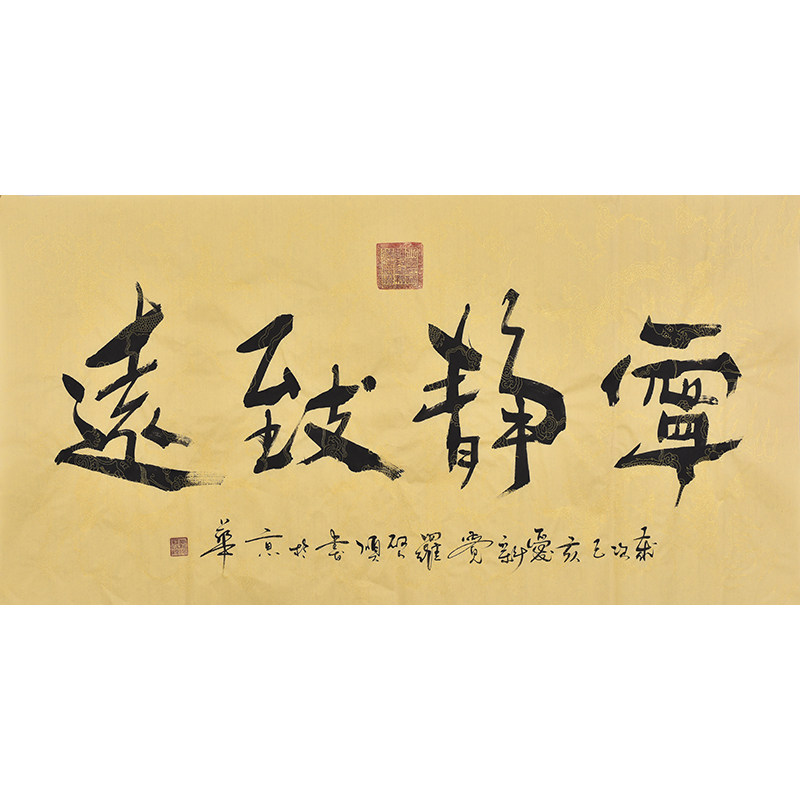 寧靜致遠
歲次己亥愛新覺羅書於京華